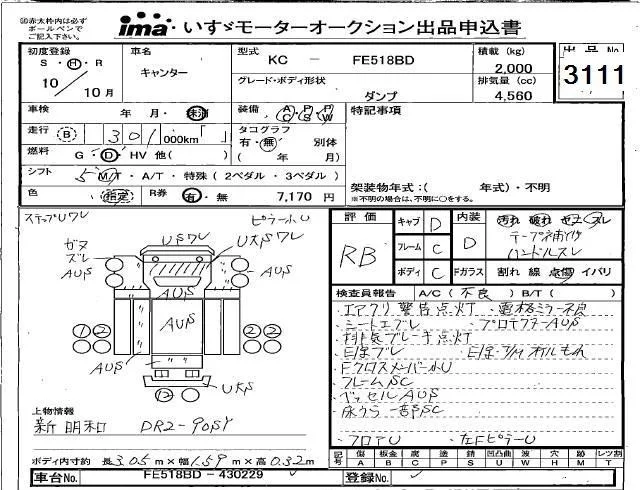 ※赤太枠内は必ず
ボールペンで
ご記入下さい。
ima いすゞモーターオークション出品申込書
初度登録
S・H・R
10／10月
車名
キャンター
型式
KC － FE518BD
グレード・ボディ形状
ダンプ
積載 (kg)
2,000
排気量 (cc)
4,560
出品No
3111
車検
年 月・抹消
装備
A C P S P W
特記事項
走行
B 301 000km
タコグラフ
有・無 別体
( 年 月)
燃料
G・D・HV 他( )
シフト
5 M/T・A/T・特殊 (2ペダル・3ペダル)
色
指定
R券
有・無 7,170 円
架装物年式:( 年式)・不明
※不明の場合は、不明に○をする。
ステップUワレ
ピラーふU
ガヌ
ズレ
AUS
USワレ
UKSワレ
AUS
AUS
AUS
AUS
AUS
UKS
上物情報
新明和 DR2-90SY
ボディ内寸約 長3.05m×幅1.59m×高0.32m
車台No. FE518BD－430229
評価
RB
キャブ D
フレーム C
ボディ C
内装
D
Fガラス
汚れ 破れ スレ
テープ補修
ハンドルスレ
割れ 線 点傷 イバリ
検査員報告 A/C ( 不良 ) B/T ( )
エアクリ警告点灯 電格ミラー不良
シートエブレ
排気ブレーキ点灯
Fクロスメンバー小U
フレームSC
ベッセルAUS
床うら一部SC
フロアU 左FピラーU
記号
傷 板金 腐 塗 錆 凹凸曲 波 穴 跡 レツ割
A B C P S U W H M T
登録No.